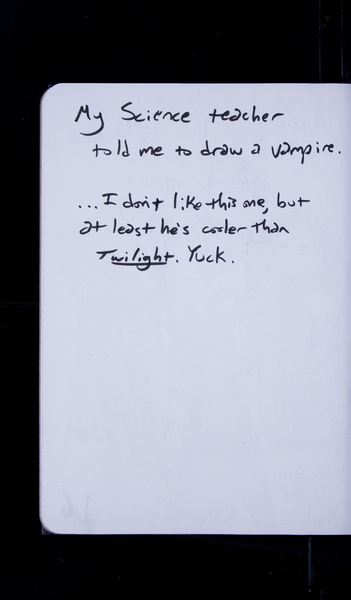 My Science teacher
told me to draw a vampire.
...I don't like this one, but
at least he's cooler than
Twilight. Yuck.